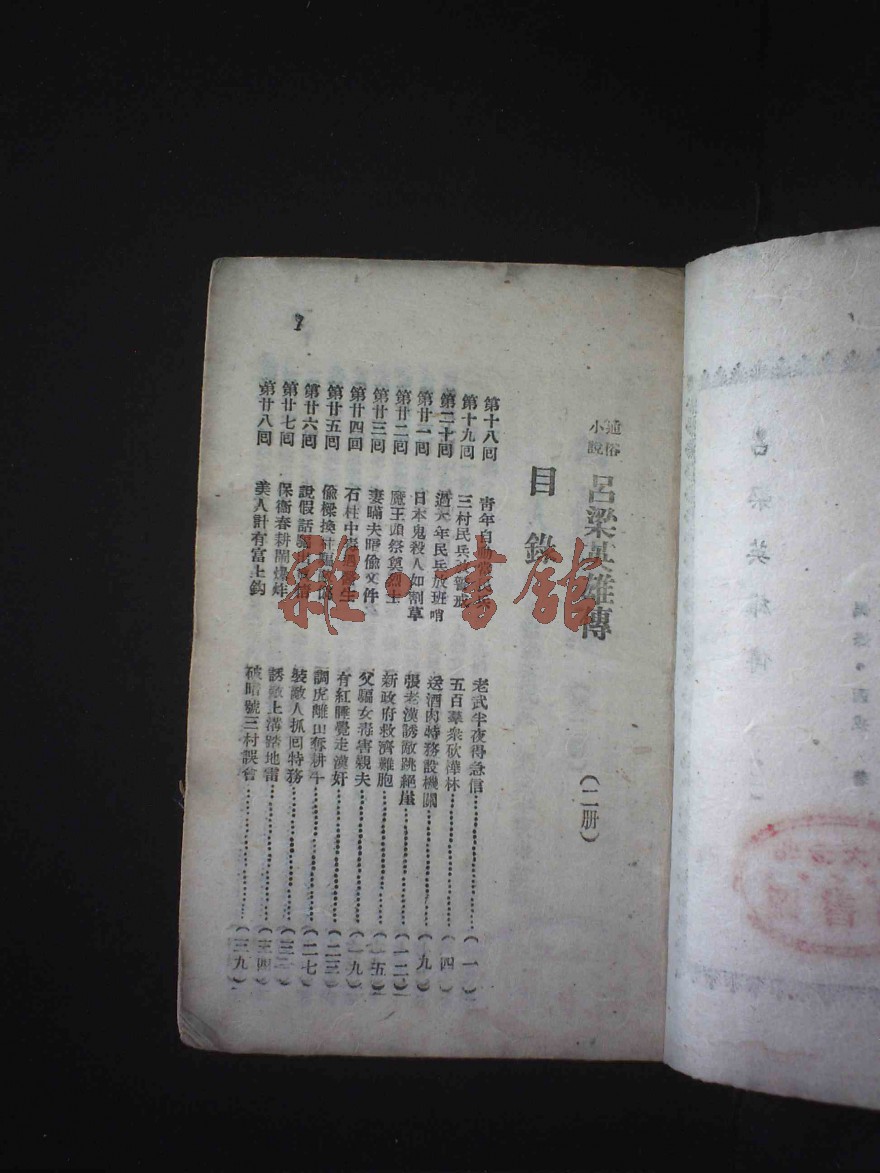 通俗
小說
呂梁英雄傳
(二册)
目錄
第十八回 青年自 老武半夜得急信……(一)
第十九回 三村民兵 警戒 五百羣衆砍樺林……(四)
第二十回 過大年民兵放班哨 送酒肉特務設機關……(九)
第廿一回 日本鬼殺人如割草 張老漢誘敵跳絕崖……(一二)
第廿二回 魔王頭祭奠烈士 新政府救濟難胞……(一五)
第廿三回 妻瞞夫暗偷文件 父騙女毒害親夫……(一九)
第廿四回 石柱中毒 生 有紅睡覺走漢奸……(二三)
第廿五回 偷樑換柱 調虎離山奪耕牛……(二七)
第廿六回 說假話 裝敵人抓回特務……(三
第廿七回 保衛春耕鬧爆炸 誘敵上溝踏地雷……(三四)
第廿八回 美人計有富上鈎 破暗號三村誤會……(三九)
雜·書館
呂梁英雄傳
著